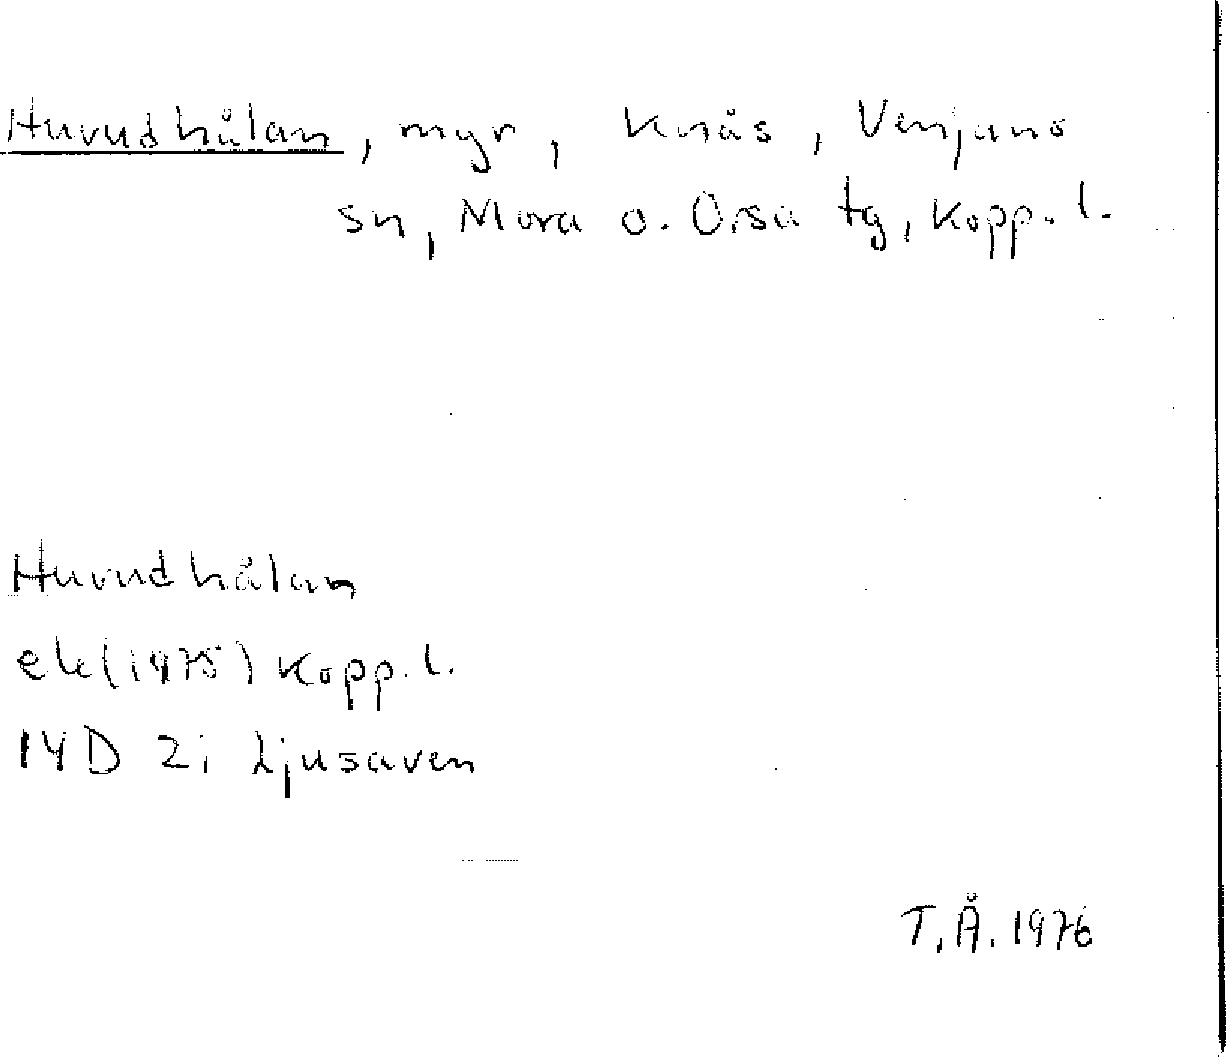 Huvudhålan, myr, Knås, Venjans
sn, Mora o. Orsa tg, Kopp. l.
Huvudhålan
ek (1975) Kopp. l.
14D 2i Ljusaven
T.Å. 1976